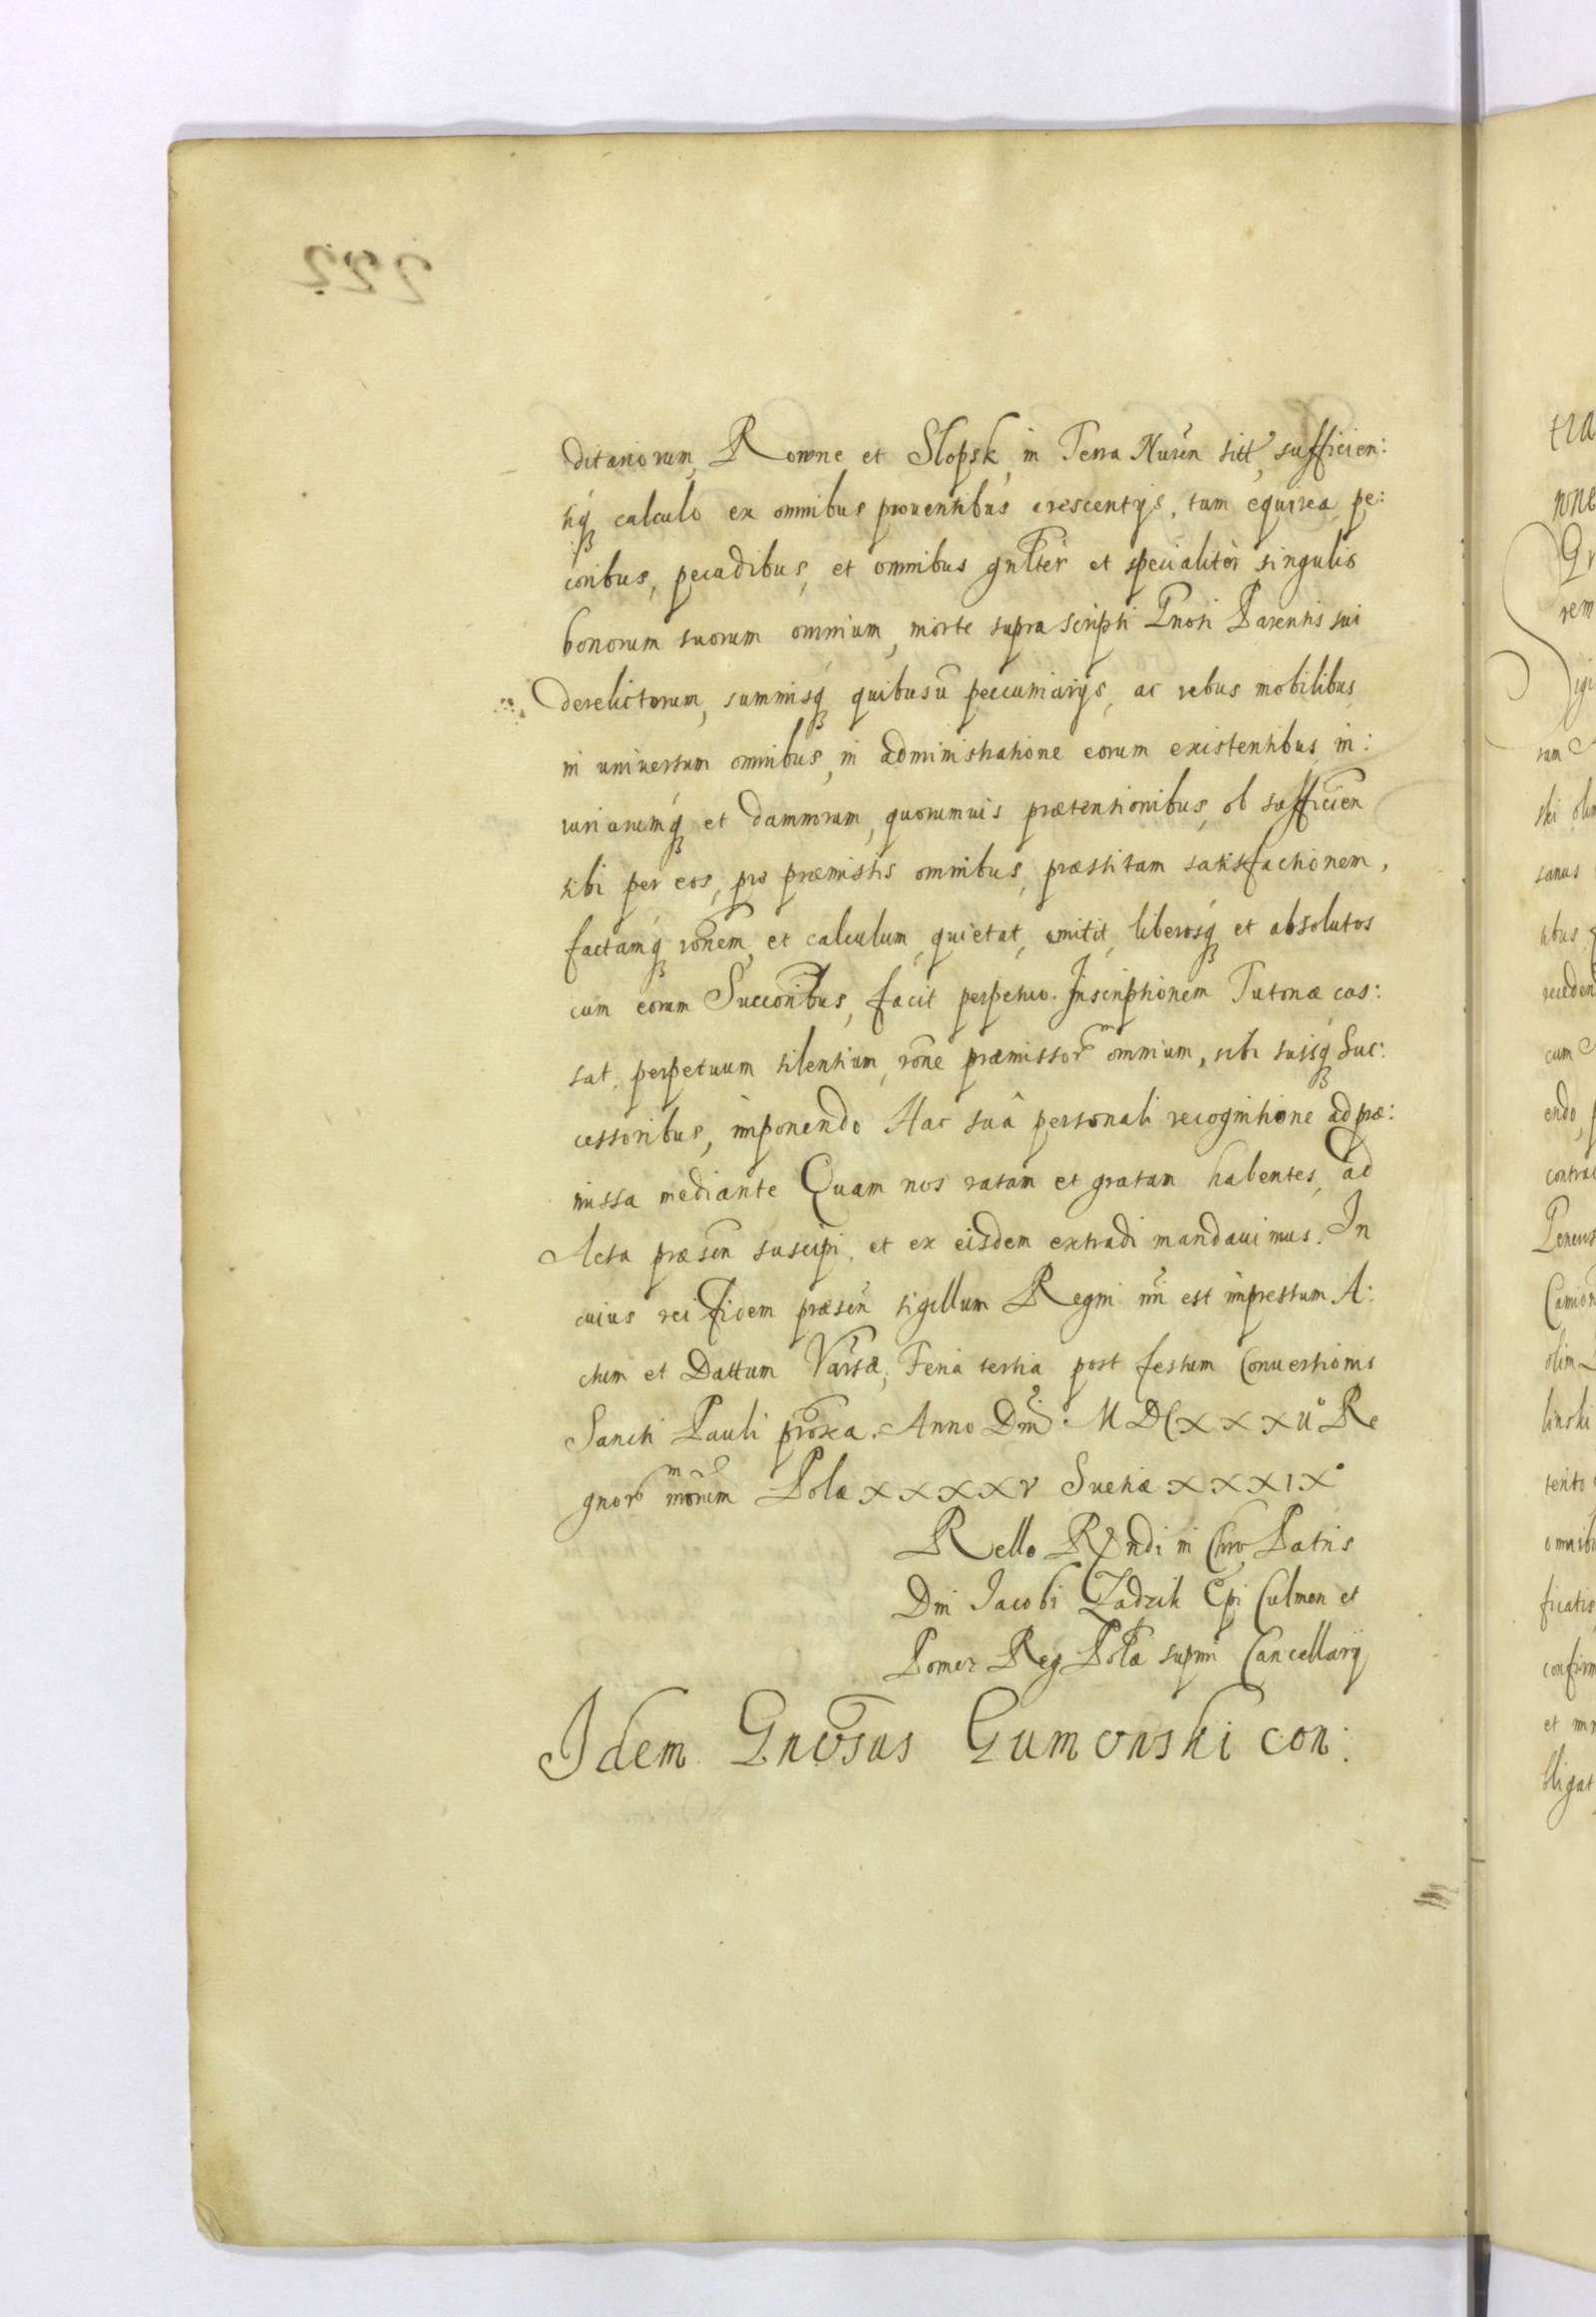 ditariorum, Rowne et Slopsk, in Terra Nuren sitt, sufficien:
tiq calculo ex omnibus prouentibus crescentijs, tum equirea, pe:
coribus, pecudibus, et omnibus gnlter et specialiter singulis
bonorum suorum omnium, morte supra scripti Gnosi Parentis sui
derelictorum, summisq quibusu peccuniarijs, ac rebus mobilibus
in uniuersum omnibus, in administratione eorum existentibus, in:
iuriarumq et damnorum, quorumuis prætentionibus, ob sufficien
sibi per eos, pro præmissis omnibus, præstitam satisfactionem,
factamq ronem, et calculum, quietat, omitit, liberosq et absolutos
cum eorum Succoribus, facit perpetuo. Inscriptionem Tutoriæ cas:
sat, perpetuum silentium, rone præmissorm omnium, sibi suisq Suc:
cessoribus, imponendo Hac suâ personali recognitione ad præ:
missa mediante Quam nos ratam et gratam habentes, ad
Acta præsen suscipi, et ex eisdem extradi mandauimus. In
cuius rei fidem præsen sigillum Regni nri est impressum A:
ctum et Dattum Varsæ, Feria tertia post festum Conuersionis
Sancti Pauli proxa. Anno Dni MDCXXXIIº Re
gnorm nrorum Polæ XXXXV Suetiæ XXXIXº
Rello Rndi in Chro Patris
Dni Jacobi Zadzik Epi Culmen et
Pomez Reg Polæ supmi Cancellarij
Idem Gnosus Gumowski con: